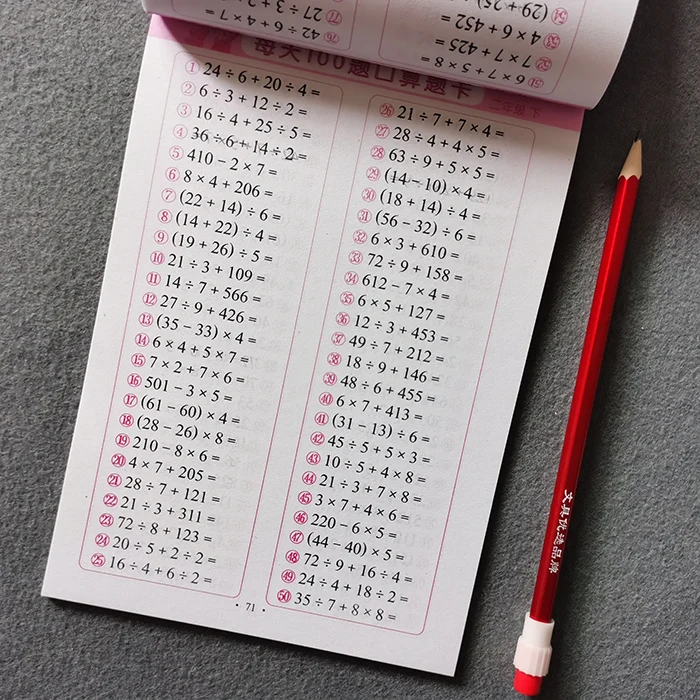 ㊿ 42 ÷ 6 + 4 × 7
27 ÷ 3 +
(29 + 25)
㊾ 4 × 6 + 452 =
7 × 7 + 425 =
6 × 7 + 5 × 8 =
每天100题口算题卡
二年级 下
① 24 ÷ 6 + 20 ÷ 4 =
② 6 ÷ 3 + 12 ÷ 2 =
③ 16 ÷ 4 + 25 ÷ 5 =
④ 36 ÷ 6 + 14 ÷ 2 =
⑤ 410 − 2 × 7 =
⑥ 8 × 4 + 206 =
⑦ (22 + 14) ÷ 6 =
⑧ (14 + 22) ÷ 4 =
⑨ (19 + 26) ÷ 5 =
⑩ 21 ÷ 3 + 109 =
⑪ 14 ÷ 7 + 566 =
⑫ 27 ÷ 9 + 426 =
⑬ (35 − 33) × 4 =
⑭ 6 × 4 + 5 × 7 =
⑮ 7 × 2 + 7 × 6 =
⑯ 501 − 3 × 5 =
⑰ (61 − 60) × 4 =
⑱ (28 − 26) × 8 =
⑲ 210 − 8 × 6 =
⑳ 4 × 7 + 205 =
㉑ 28 ÷ 7 + 121 =
㉒ 21 ÷ 3 + 311 =
㉓ 72 ÷ 8 + 123 =
㉔ 20 ÷ 5 + 2 ÷ 2 =
㉕ 16 ÷ 4 + 6 ÷ 2 =
㉖ 21 ÷ 7 + 7 × 4 =
㉗ 28 ÷ 4 + 4 × 5 =
㉘ 63 ÷ 9 + 5 × 5 =
㉙ (14 − 10) × 4 =
㉚ (18 + 14) ÷ 4 =
㉛ (56 − 32) ÷ 6 =
㉜ 6 × 3 + 610 =
㉝ 72 ÷ 9 + 158 =
㉞ 612 − 7 × 4 =
㉟ 6 × 5 + 127 =
㊱ 12 ÷ 3 + 453 =
㊲ 49 ÷ 7 + 212 =
㊳ 18 ÷ 9 + 146 =
㊴ 48 ÷ 6 + 455 =
㊵ 6 × 7 + 413 =
㊶ (31 − 13) ÷ 6 =
㊷ 45 ÷ 5 + 5 × 3 =
㊸ 10 ÷ 5 + 4 × 8 =
㊹ 21 ÷ 3 + 7 × 8 =
㊺ 3 × 7 + 4 × 6 =
㊻ 220 − 6 × 5 =
㊼ (44 − 40) × 5 =
㊽ 72 ÷ 9 + 16 ÷ 4 =
㊾ 24 ÷ 4 + 18 ÷ 2 =
㊿ 35 ÷ 7 + 8 × 8 =
· 71 ·
文具优选品牌